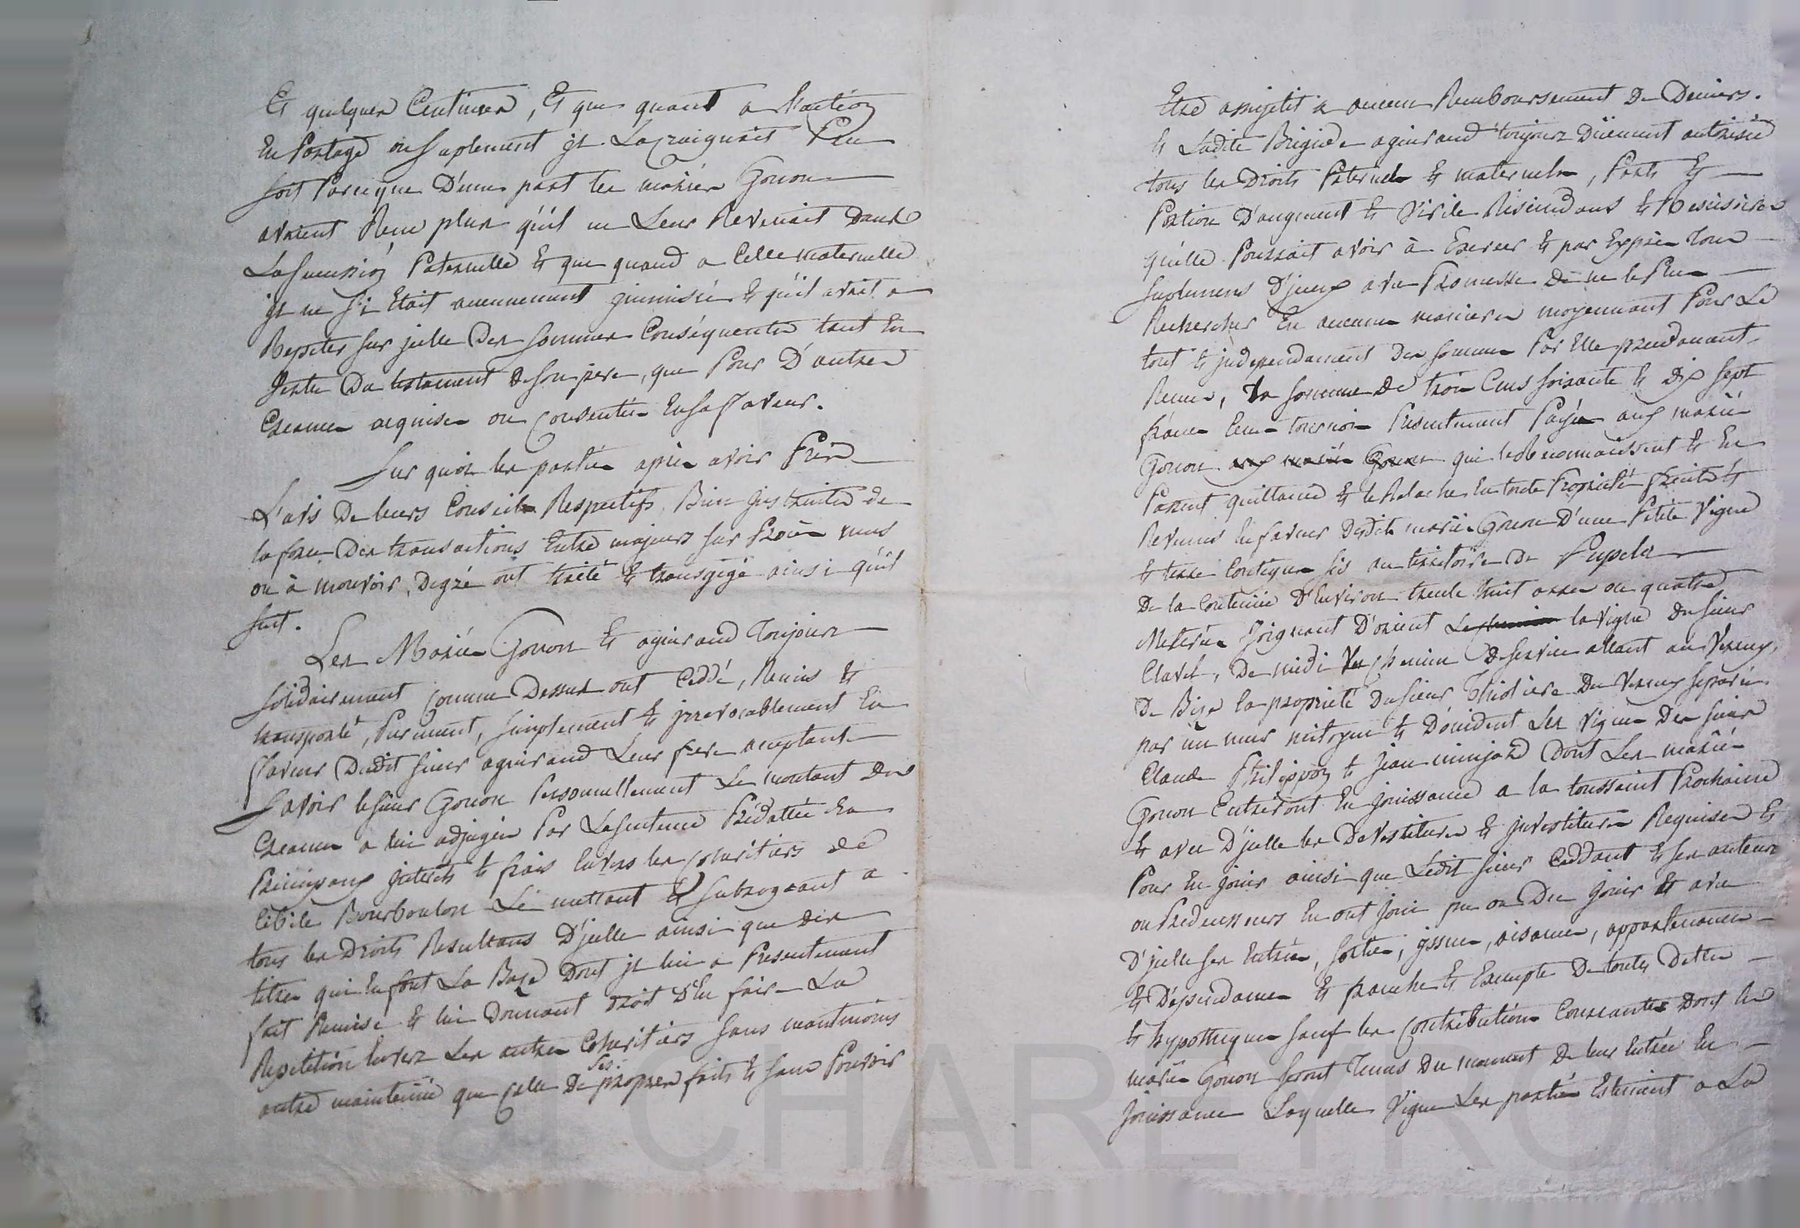 Et quelques Centimes, Et que quant a L'action
En Partage ou Suplement jl La craignait Peu
soit Parceque D'une part les mariés Gonon
avaient Recu plus qu'il ne Leur Revenait Dans
La Succession Paternelle & que quand a Celle maternelle
jl ne s'i Etait aucunement jmmissé & qu'il avait a
Repeter sur jcelle Des sommes Conséquentes tant En
Vertu Du testament De son pere, que Pour D'autres
Creances acquises ou Consenties En sa faveur.
Sur quoi les parties apres avoir Pris
L'avis De leurs Conseils Respectifs, Bien jnstruites de
la force Des transactions Entre majeurs sur Procès mus
ou à mouvoir, De gré ont traité & transigé ainsi qu'il
suit.
Les Mariés Gonon & aguiraud Toujours
solidairement comme Dessus ont Cédé, Remis &
transporté, Purement, simplement & jrrevocablement En
faveur Dudit sieur aguiraud Leur frere acceptant
Savoir le sieur Gonon Personnellement Le montant des
Creances a lui adjugées Par La sentence Prédattée En
Principaux jnterets & frais Envers les Coheritiers de
Cibile Bourboulon Le mettant & subrogeant a
tous les Droits Resultans D'jcelle ainsi que des
titres qui En font La Base Dont jl lui a Presentement
fait Remise & lui Donnant Droit D'En faire La
Repetition Envers Les autres Coheritiers sans neantmoins
autre maintenüe que Celle De ses propres faits & sans Pouvoir
Etre assujetit a aucun Remboursement De Deniers.
& Ladite Brigitte aguiraud toujours Düement autorisée
tous les Droits Paternels & maternels, Parts &
Portion D'augment & Virile Rescindans & Rescisoires
qu'elle Pourrait avoir à Exercer & par Exprès Tous
Suplemens D'jceux avec Promesse De ne le Plus
Rechercher En aucune maniere moyennant Pour Le
tout & jndependament Des sommes Par Elle precedament
Recues, La somme De trois Cens soixante & dix sept
francs Cens tournois Presentement Payée aux mariés
Gonon aux mariés Gonon qui le Reconnaissent & En
Passent quittance & le Relache En toute Propriété fruits &
Revenus En faveur Desdits mariés Gonon D'une Petite Vigne
& terre Contigue sis au territoire De Pupeler
De la Contenüe D'Environ trente huit ares ou quatre
Meterées Joignant D'orient Le chemin la Vigne du sieur
Clavel, De midi Un Chemin De service allant au Verney,
De Bize la propriété Du sieur Thiolliere Du Verney separée
par un mur mitoyen & D'occident Les Vignes Des sieurs
Claude Philippon & Jean minjard Dont Les mariés
Gonon Entreront En jouissance a la toussaint Prochaine
& avec D'jcelle les Devestitures & jnvestitures Requises &
Pour En jouir ainsi que Ledit sieur Ceddant & ses auteurs
ou Predecesseurs En ont joui pu ou Du jouir & avec
D'jcelle ses Entrées, sorties, jssues, aisances, appartenances
& Dependances & franche & Exempte De toutes Dettes
& hypotheques sauf les Contributions Courantes Dont les
mariés Gonon seront Tenus Du moment De leur Entrée En
jouissance Laquelle Vigne Les parties Estiment a La
CHAREYRON